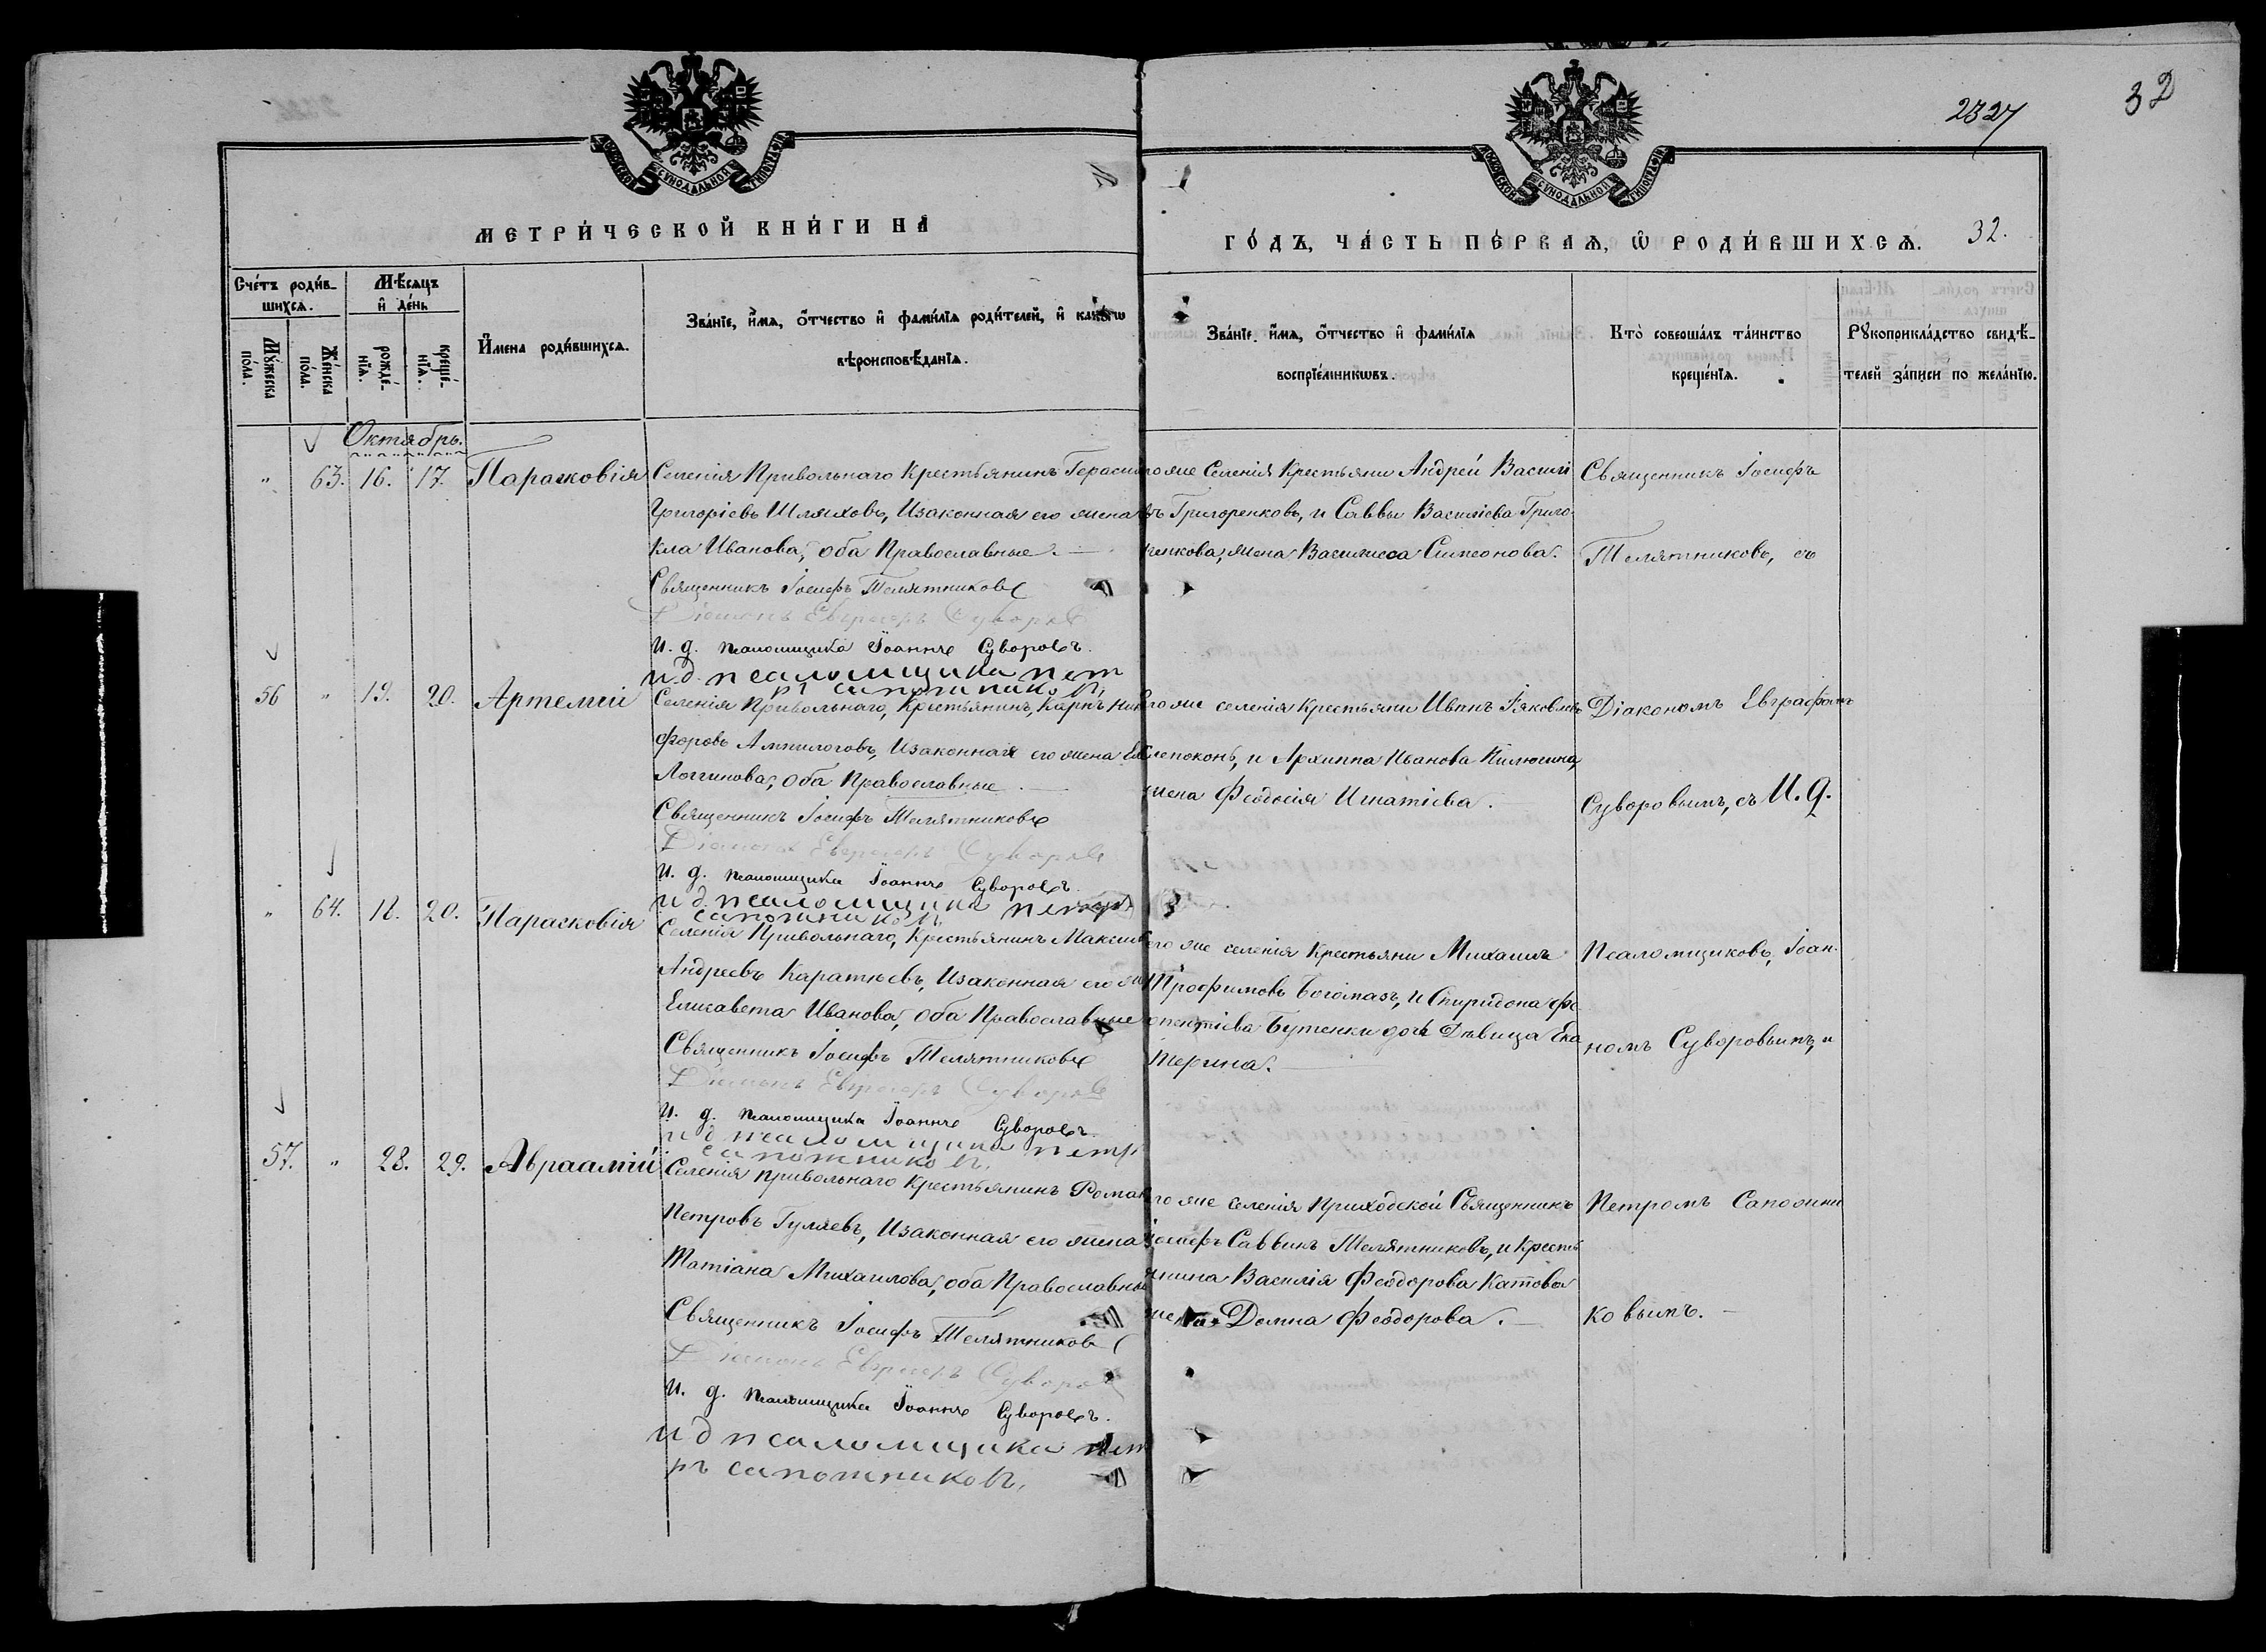 2327
32
МОСКОВСКОЙ СѴНОДАЛЬНОЙ ТИПОГРАФІИ
МОСКОВСКОЙ СѴНОДАЛЬНОЙ ТИПОГРАФІИ
МЕТРИ́ЧЕСКОЙ КНИ́ГИ НА
ГО́ДЪ, ЧА́СТЬ ПЕ́РВАѦ, Ѡ РОДИ́ВШИХСѦ. 32.
Сче́тъ роди́в-
шихсѧ.
Мꙋ́жеска по́ла.
Же́нска по́ла.
Мѣ́сѧцъ
и҆ де́нь
рожде́-
нїѧ.
креще́-
нїѧ.
И҆мена роди́вшихсѧ.
Зва́нїе, и҆́мѧ, ѻ҆́тчество и҆ фами́лїѧ роди́телей, и҆ како́гѡ
вѣроисповѣ́данїѧ.
Зва́нїе, и҆́мѧ, ѻ҆́тчество и҆ фами́лїѧ
воспрїе́мникѡвъ.
Кто̀ соверша́лъ та́инство
креще́нїѧ.
Рꙋкоприкла́дство свидѣ́-
телей за́писи по жела́нїю.
Октябрь.
" 63. 16. 17. Парасковія
Селенія Привольнаго Крестьянинъ Герасим
Григоріевъ Шляховъ, Изаконная его жена
кла Иванова, оба Православные.
Священникъ Іосифъ Телятниковъ
Діаконъ Евграфъ Суворовъ
И. д. псаломщика Іоаннъ Суворовъ.
и д. псаломщика пет
ръ сапожниковъ,
го же Селенія Крестьяни Андрей Василі
въ Григоренковъ, и Саввы Василіева Григо-
ренкова, жена Василиса Симеонова.
Священникъ Іосифъ
Телятниковъ, съ
56 " 19. 20. Артемій
Селенія Привольнаго, Крестьянинъ, Карпъ Ники
форовъ Ампилоговъ, Изаконная его жена
Логгинова, оба Православные
Священникъ Іосифъ Телятниковъ
Діаконъ Евграфъ Суворовъ
И. д. псаломщика Іоаннъ Суворовъ.
и д. псаломщика петръ
сапожниковъ
го же селенія Крестьяни Иванъ Іяковлевъ
Слепоконь, и Архиппа Иванова Пилюгина,
жена Феодосія Игнатіева.
Діакономъ Евграфомъ
Суворовымъ, съ И. д.
" 64. 18. 20. Парасковія
Селенія Привольнаго, Крестьянинъ Максим
Андреевъ Каратюевъ, Изаконная его же
Елисавета Иванова, оба Православные
Священникъ Іосифъ Телятниковъ
Діаконъ Евграфъ Суворовъ
И. д. псаломщика Іоаннъ Суворовъ.
и д псаломщика петръ
сапожниковъ.
его же селенія Крестьяни Михаилъ
Трофимовъ Богомазъ, и Спиридона Фе
опентіева Бутенки дочь Дѣвица Ека
терина.
Псаломщиковъ, Іоан-
номъ Суворовымъ, и
57. " 28. 29. Авраамій
Селенія Привольнаго Крестьянинъ Роман
Петровъ Гуляевъ, Изаконная его жена
Татіана Михаилова, оба Православные
Священникъ Іосифъ Телятниковъ
Діаконъ Евграфъ Суворовъ
И. д. псаломщика Іоаннъ Суворовъ.
и д псаломщика пет
ръ сапожниковъ,
го же селенія Приходской Священникъ
Іосифъ Саввинъ Телятниковъ, и Кресть
янина Василія Феодорова Катова
жена Домна Феодорова.
Петромъ Сапожни
ковымъ.